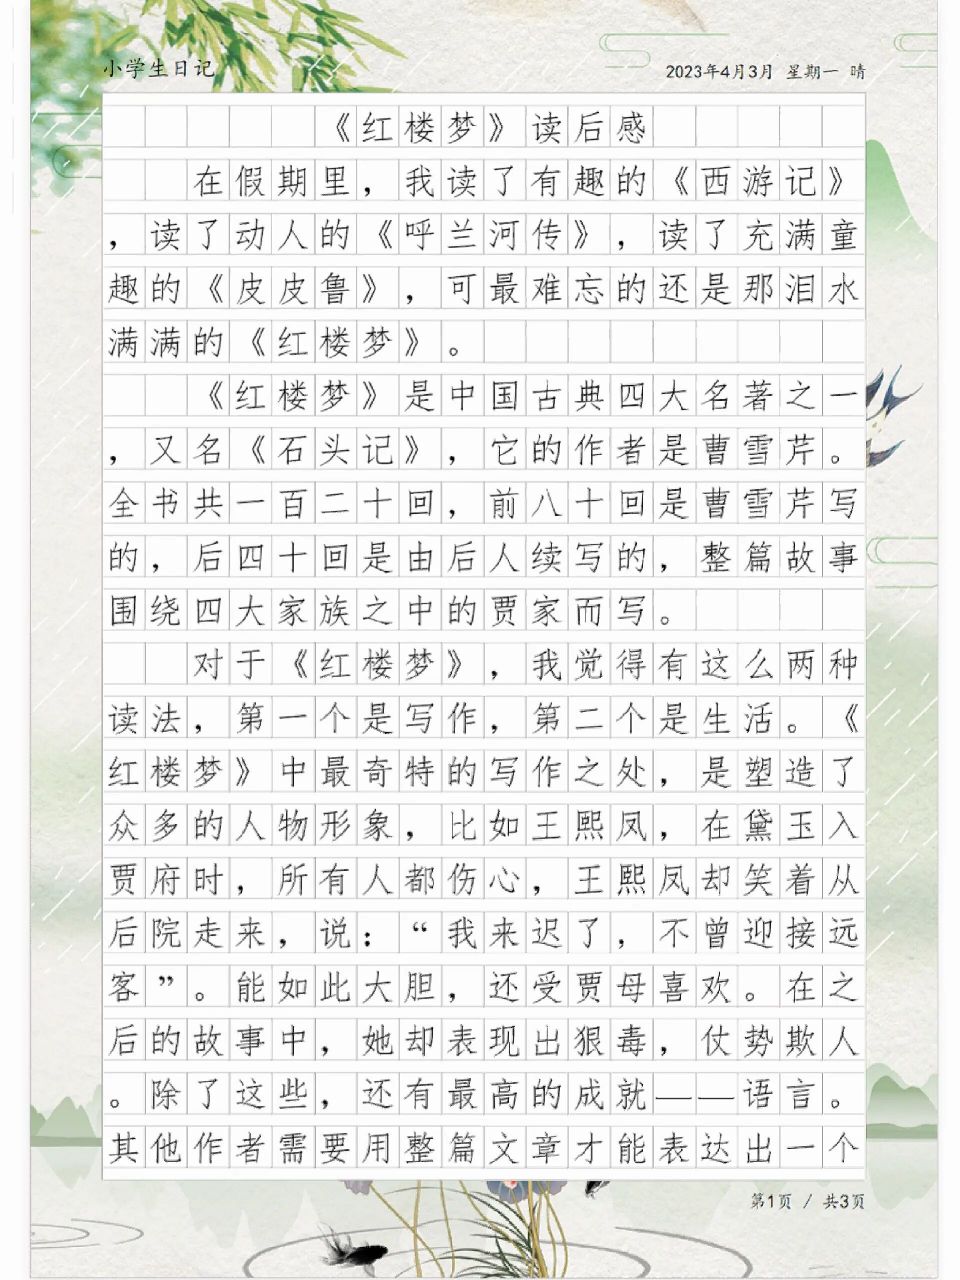 小学生日记
2023年4月3月 星期一 晴
《红楼梦》读后感
在假期里，我读了有趣的《西游记》
，读了动人的《呼兰河传》，读了充满童
趣的《皮皮鲁》，可最难忘的还是那泪水
满满的《红楼梦》。
《红楼梦》是中国古典四大名著之一
，又名《石头记》，它的作者是曹雪芹。
全书共一百二十回，前八十回是曹雪芹写
的，后四十回是由后人续写的，整篇故事
围绕四大家族之中的贾家而写。
对于《红楼梦》，我觉得有这么两种
读法，第一个是写作，第二个是生活。《
红楼梦》中最奇特的写作之处，是塑造了
众多的人物形象，比如王熙凤，在黛玉入
贾府时，所有人都伤心，王熙凤却笑着从
后院走来，说：“我来迟了，不曾迎接远
客”。能如此大胆，还受贾母喜欢。在之
后的故事中，她却表现出狠毒，仗势欺人
。除了这些，还有最高的成就——语言。
其他作者需要用整篇文章才能表达出一个
第1页 / 共3页